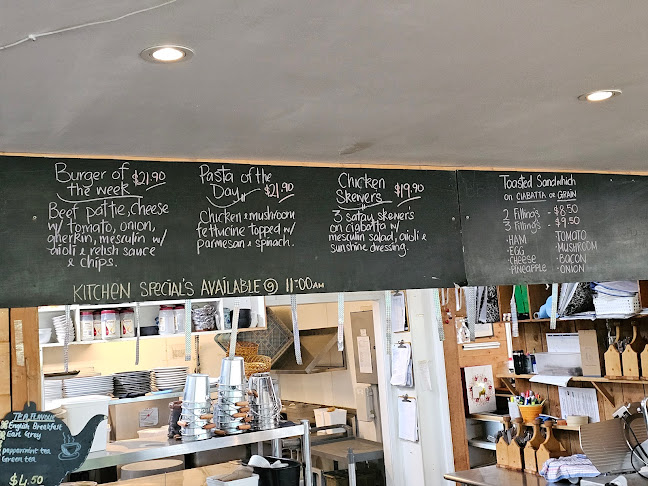 Burger of
the week $21.90
Beef pattie, cheese
w/ tomato, onion,
gherkin, mesculin w/
aioli & relish sauce
& chips.
Pasta of the
Day $21.90
Chicken & mushroom
fettucine topped w/
parmesan & spinach.
Chicken
Skewers $19.90
3 satay skewers
on ciabatta w/
mesculin salad, aioli &
sunshine dressing.
KITCHEN SPECIAL'S AVAILABLE @ 11:00AM
Toasted Sandwhich
on CIABATTA or GRAIN
2 Filling's - $8.50
3 Filling's - $9.50
· HAM
· EGG
· CHEESE
· PINEAPPLE
· TOMATO
· MUSHROOM
· BACON
· ONION
English Breakfast
Earl Grey
peppermint tea
Green tea
$4.50